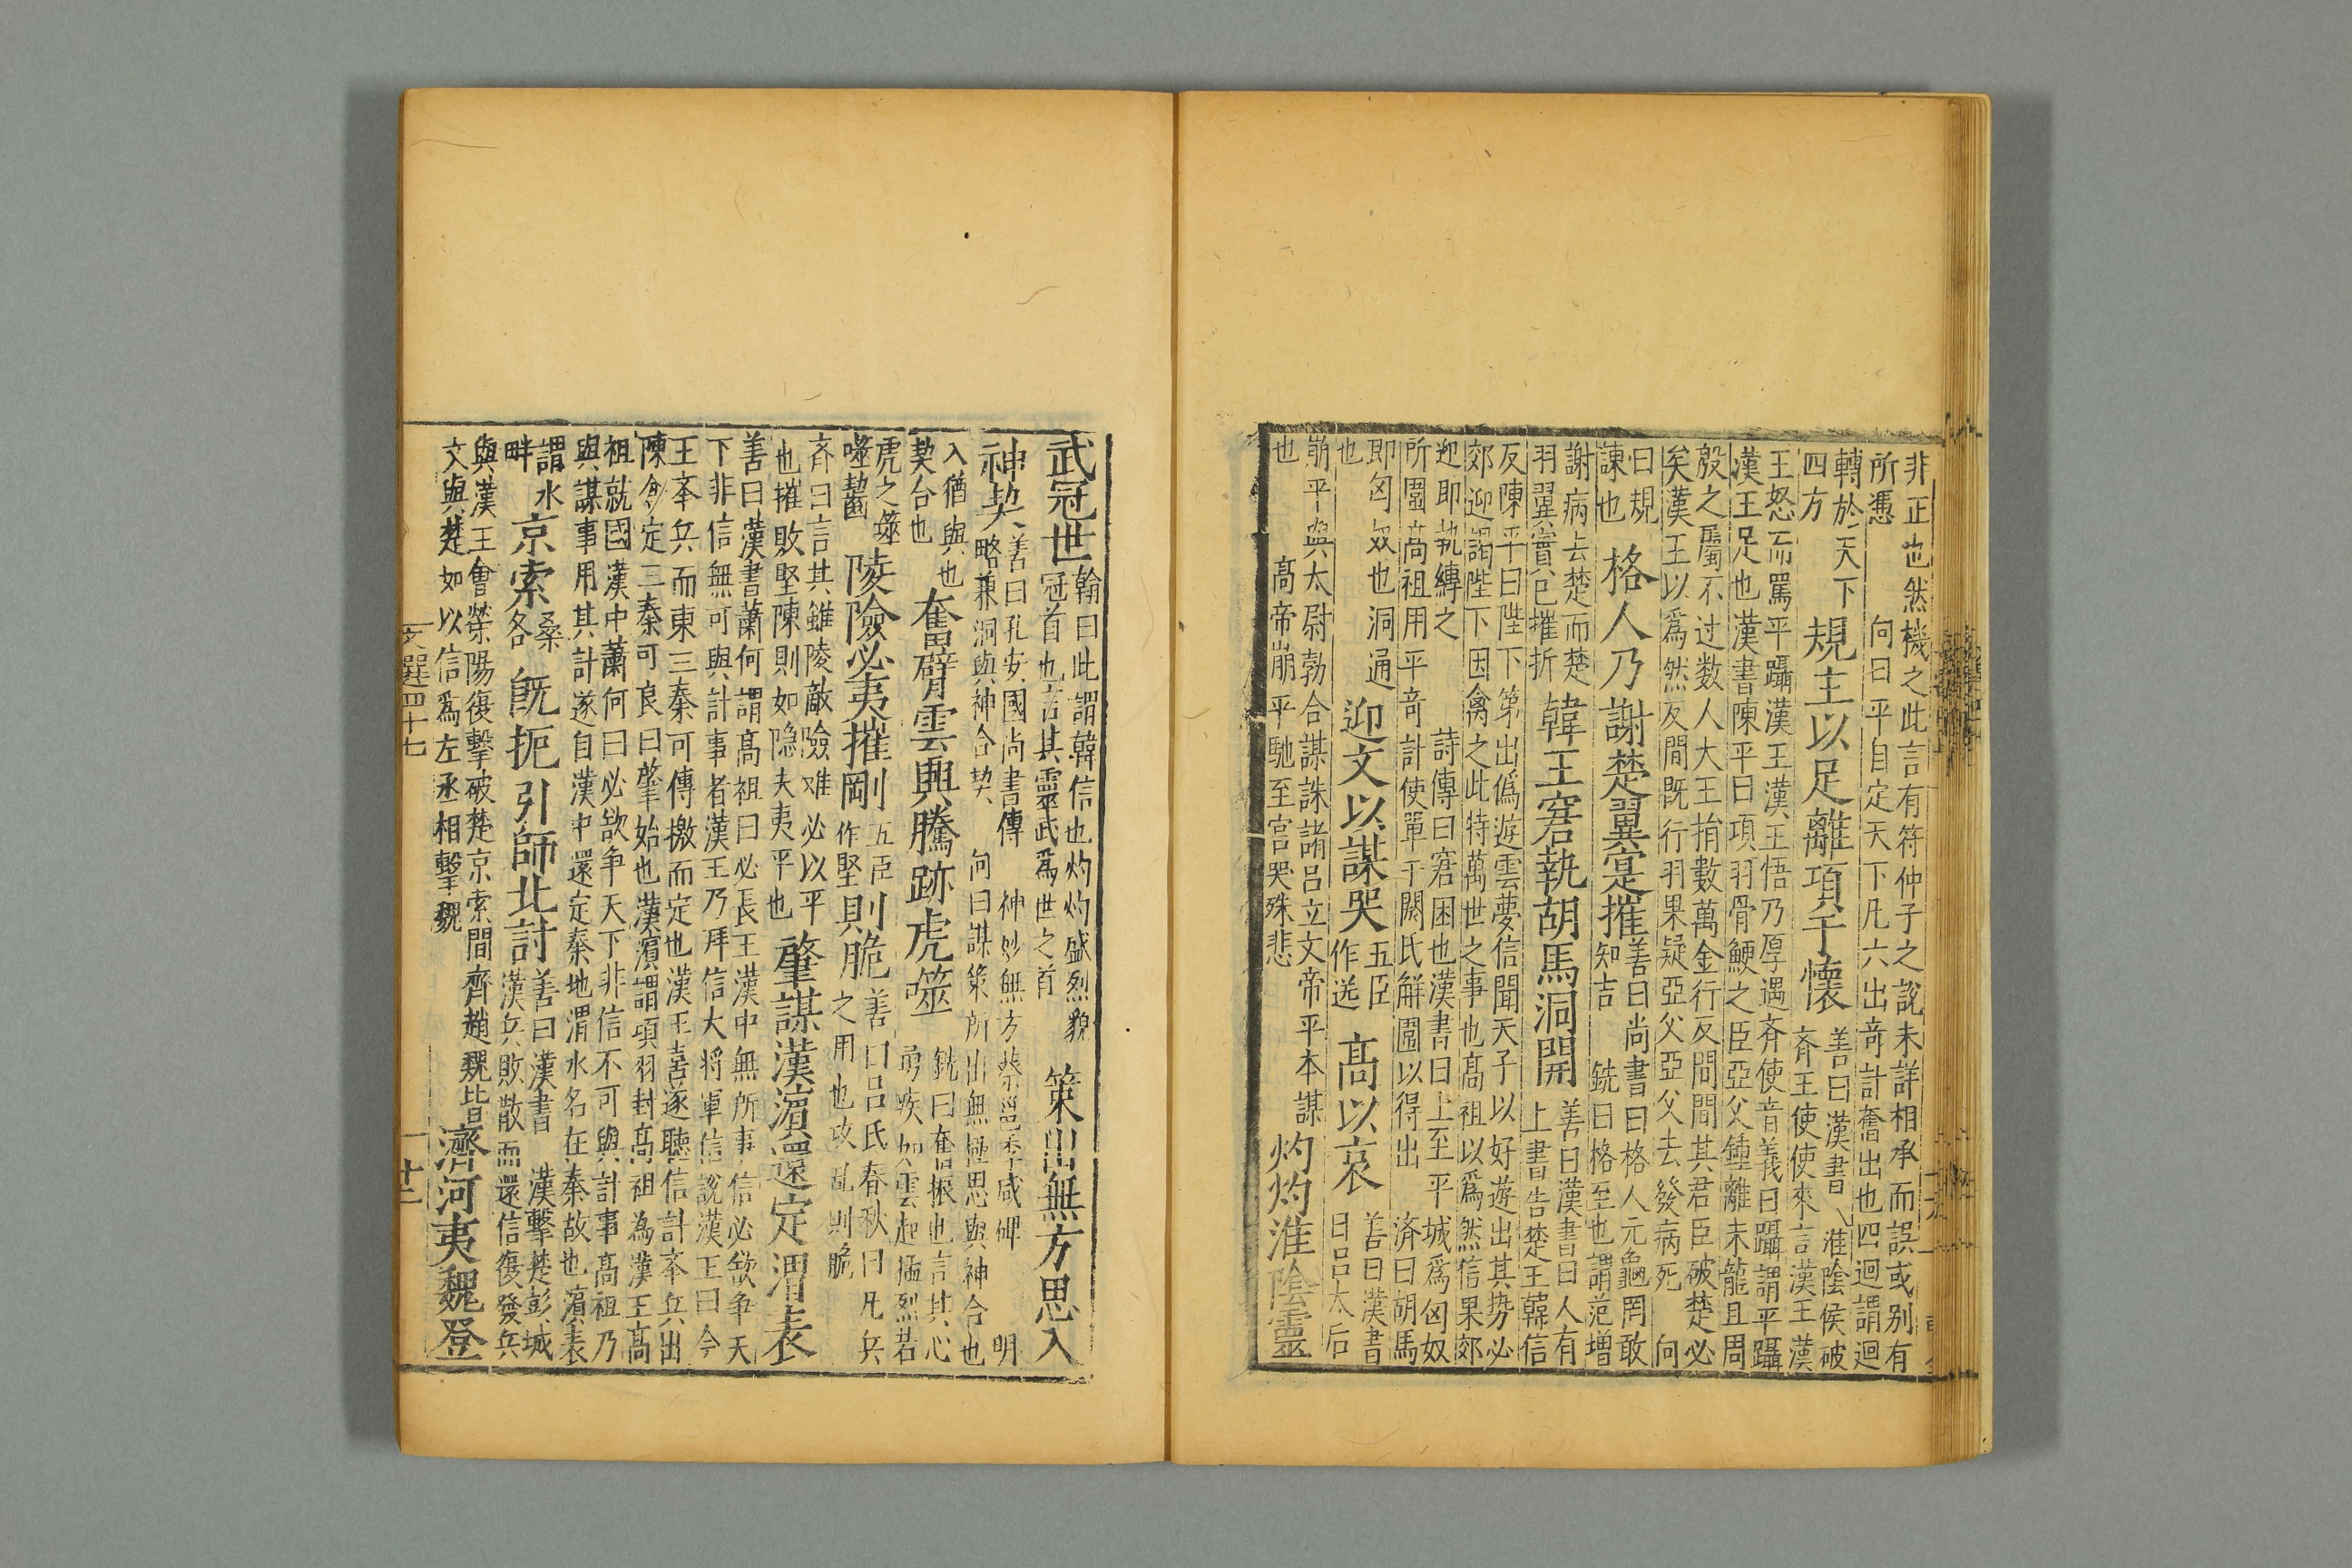 非正也然機之此言有符仲子之說未詳相承而誤或别有
所憑 向曰平自定天下凡六出竒計奮出也四迴謂迴
轉於天下
四方 規主以足離項于懷 善曰漢書淮陰侯破
齊王使使來言漢王漢
王怒而罵平躡漢王漢王悟乃厚遇齊使音義曰躡謂平躡
漢王足也漢書陳平曰項羽骨鯁之臣亞父鍾離未龍且周
殷之屬不过数人大王捐數萬金行反間間其君臣破楚必
矣漢王以爲然反間既行羽果疑亞父亞父去發病死 向
曰規
諫也 格人乃謝楚翼寔摧 善曰尚書曰格人元龜罔敢
知吉 銑曰格至也謂范增
謝病去楚而楚
羽翼實已摧折 韓王窘執胡馬洞開 善曰漢書曰人有
上書告楚王韓信
反陳平曰陛下第出僞遊雲夢信聞天子以好遊出其势必
郊迎謁陛下因禽之此特萬世之事也髙祖以爲然信果郊
迎即執縛之 詩傳曰窘困也漢書曰上至平城爲匈奴
所圍髙祖用平竒計使單于閼氏解圍以得出 済曰胡馬
即匈奴也洞通
也 迎文以謀哭 五臣
作送 髙以哀 善曰漢書
曰吕太后
崩平與太尉勃合謀誅諸吕立文帝平本謀
也 髙帝崩平馳至宫哭殊悲 灼灼淮陰靈
武冠世 翰曰此謂韓信也灼灼盛烈貌
冠首也言其靈武爲世之首 策出無方思入
神契 善曰孔安國尚書傳 神妙無方蔡邕李咸碑 明
略兼洞與神合契 向曰謀策所出無極思與神合也
入猶與也
契合也 奮臂雲興騰跡虎噬 銑曰奮振也言其心
勇疾如雲起猛烈若
虎之噬
噬齧 陵險必夷摧剛 五臣
作堅 則脆 善曰吕氏春秋曰凡兵
之用也攻亂則脆
斉曰言其雖陵敵險难必以平
也摧敗堅陳則如隐夫夷平也 肇謀漢濵還定渭表
善曰漢書蕭何謂髙祖曰必長王漢中無所事信必欲争天
下非信無可與計事者漢王乃拜信大将軍信說漢王曰今
王夲兵而東三秦可傳檄而定也漢王喜遂聴信計夲兵出
陳倉定三秦可良曰肇始也漢濵謂項羽封髙祖為漢王髙
祖就國漢中蕭何曰必欲争天下非信不可與計事髙祖乃
與謀事用其計遂自漢中還定秦地渭水名在秦故也濵表
謂水
畔 京索 桑
各 旣扼引師北討 善曰漢書 漢擊楚彭城
漢兵敗散而還信復發兵
與漢王會滎陽復擊破楚京索間齊趙魏皆
文與楚如以信爲左丞相擊魏 濟河夷魏登
文選四十七
十二